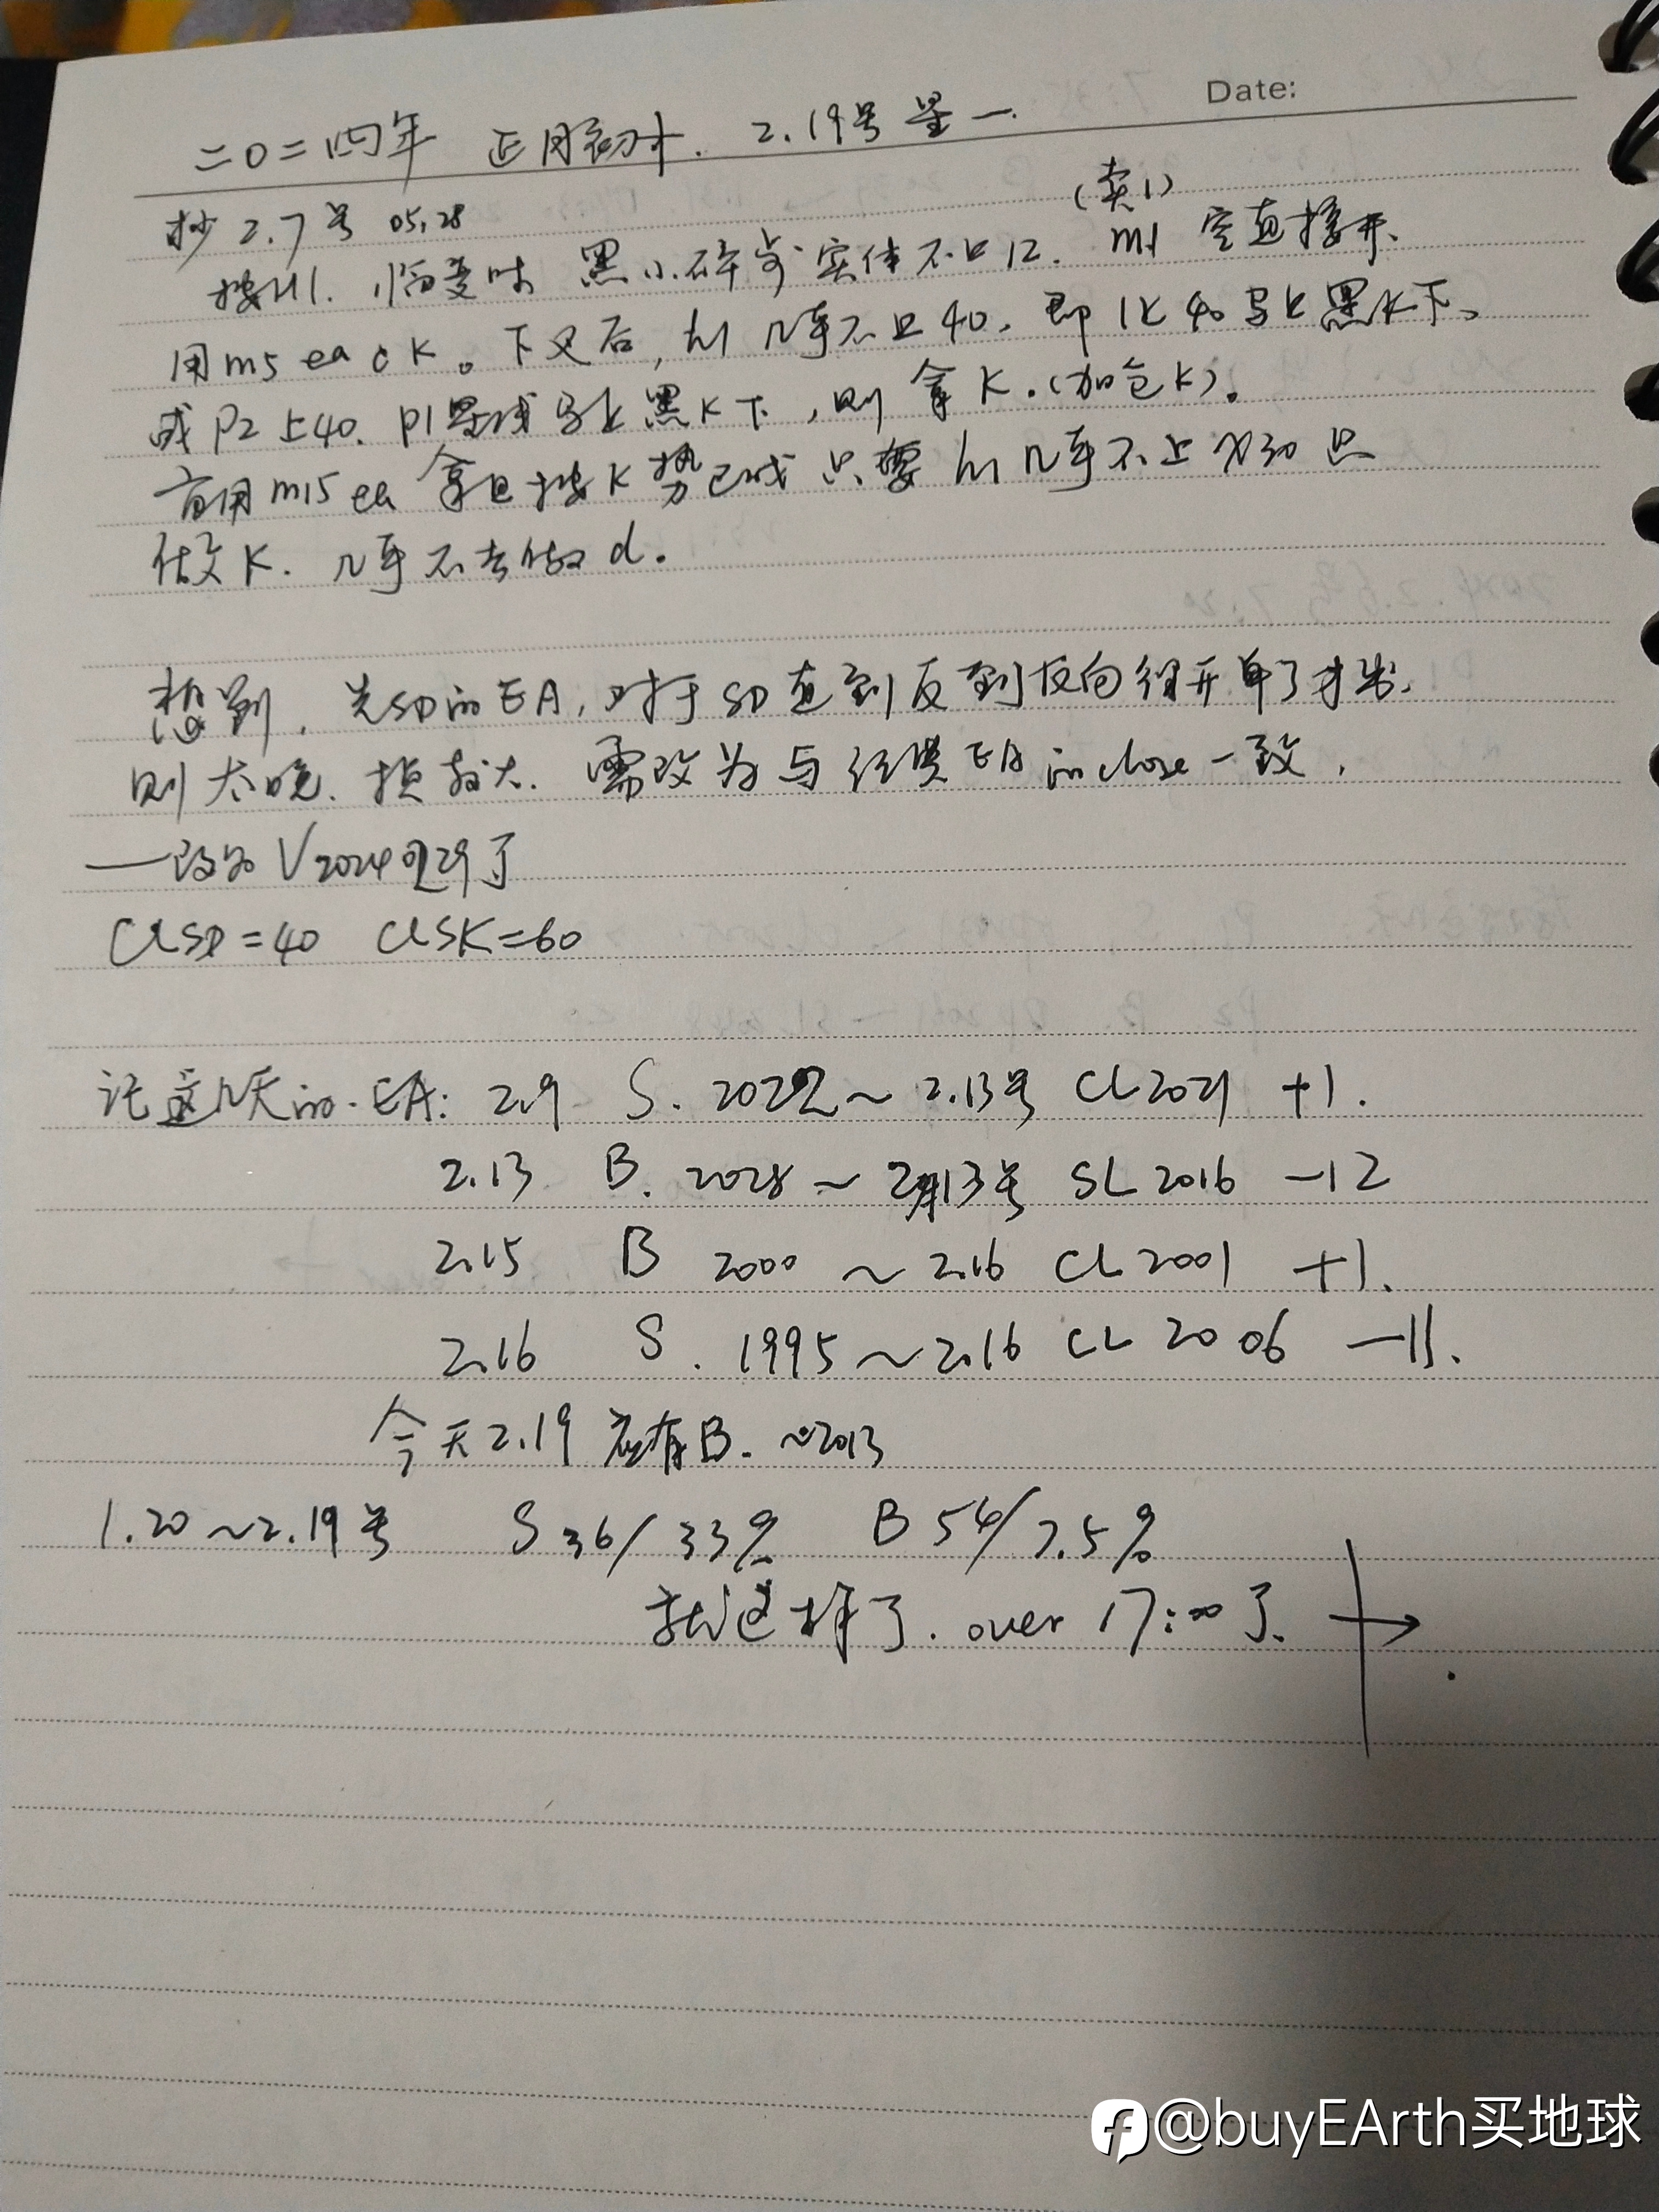 Date:
二〇二四年 正月初十. 2.19号 星一.
抄 2.7号 05,28
(卖1)
接H1. 黑小 实体不 12. m1 空直接开.
用m5 ea o K。下叉后, h1 几乎不上40, 即 1K 40 黑K下。
或P2上40. P1 黑K下, 则拿K.(加仓K)。
用m15 ea 拿 K势已成 只要 h1几乎不上 30 只
做K. 几乎不去做d.
想到, 先SD的EA, 对于SD直到反到反向 开单了才出,
则太晚. 损较大. 需改为与 EA的close一致,
——改为V2024 了
CLSD=40 CLSK=60
记这几天的.EA: 2.9 S. 2022~ 2.13号 CL2021 +1.
2.13 B. 2028~ 2月13号 SL 2016 -12
2.15 B 2000 ~ 2.16 CL2001 +1.
2.16 S. 1995~2.16 CL 2006 -11.
今天2.19 有B. ~2013
1.20~2.19号 S 36/33% B 54/7.5%
就这样了. over 17:00了.
@buyEArth买地球